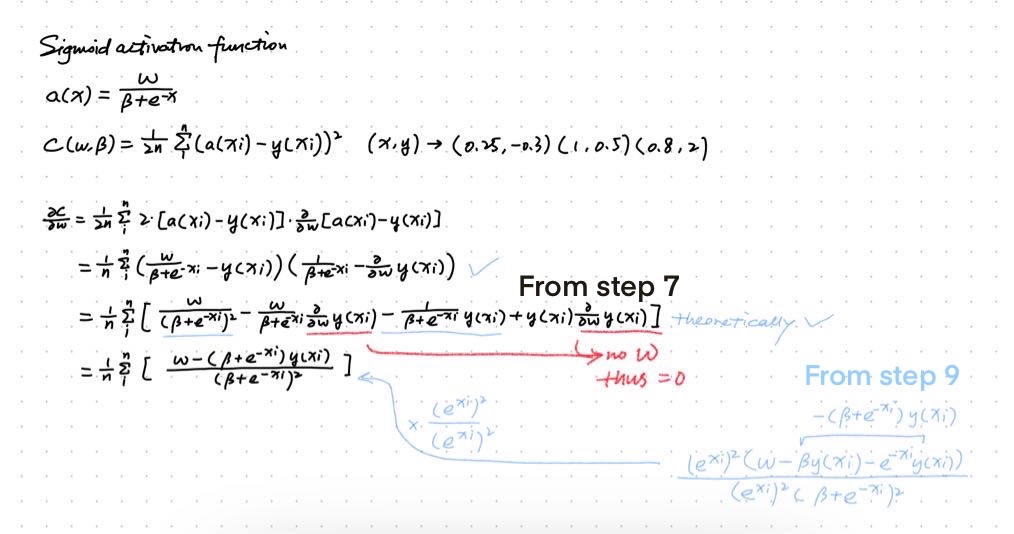 Sigmoid activation function
a(x) = w / (β+e^-x)
C(w,β) = 1/2n Σ_1^n (a(xi) - y(xi))² (x,y) → (0.25, -0.3) (1, 0.5) (0.8, 2)
∂C/∂w = 1/2n Σ_i^n 2·[a(xi) - y(xi)]·∂/∂w [a(xi) - y(xi)]
= 1/n Σ_i^n (w/(β+e^-xi) - y(xi)) (1/(β+e^-xi) - ∂/∂w y(xi)) ✓
From step 7
= 1/n Σ_i^n [ w/(β+e^-xi)² - w/(β+e^-xi) ∂/∂w y(xi) - 1/(β+e^-xi) y(xi) + y(xi) ∂/∂w y(xi) ] theoretically. ✓
→ no w
thus = 0
= 1/n Σ_i^n [ (w - (β+e^-xi) y(xi)) / (β+e^-xi)² ]
From step 9
x. (e^xi)² / (e^xi)²
-(β+e^-xi) y(xi)
(e^xi)² (w - βy(xi) - e^-xi y(xi)) / (e^xi)² ( β+e^-xi )²